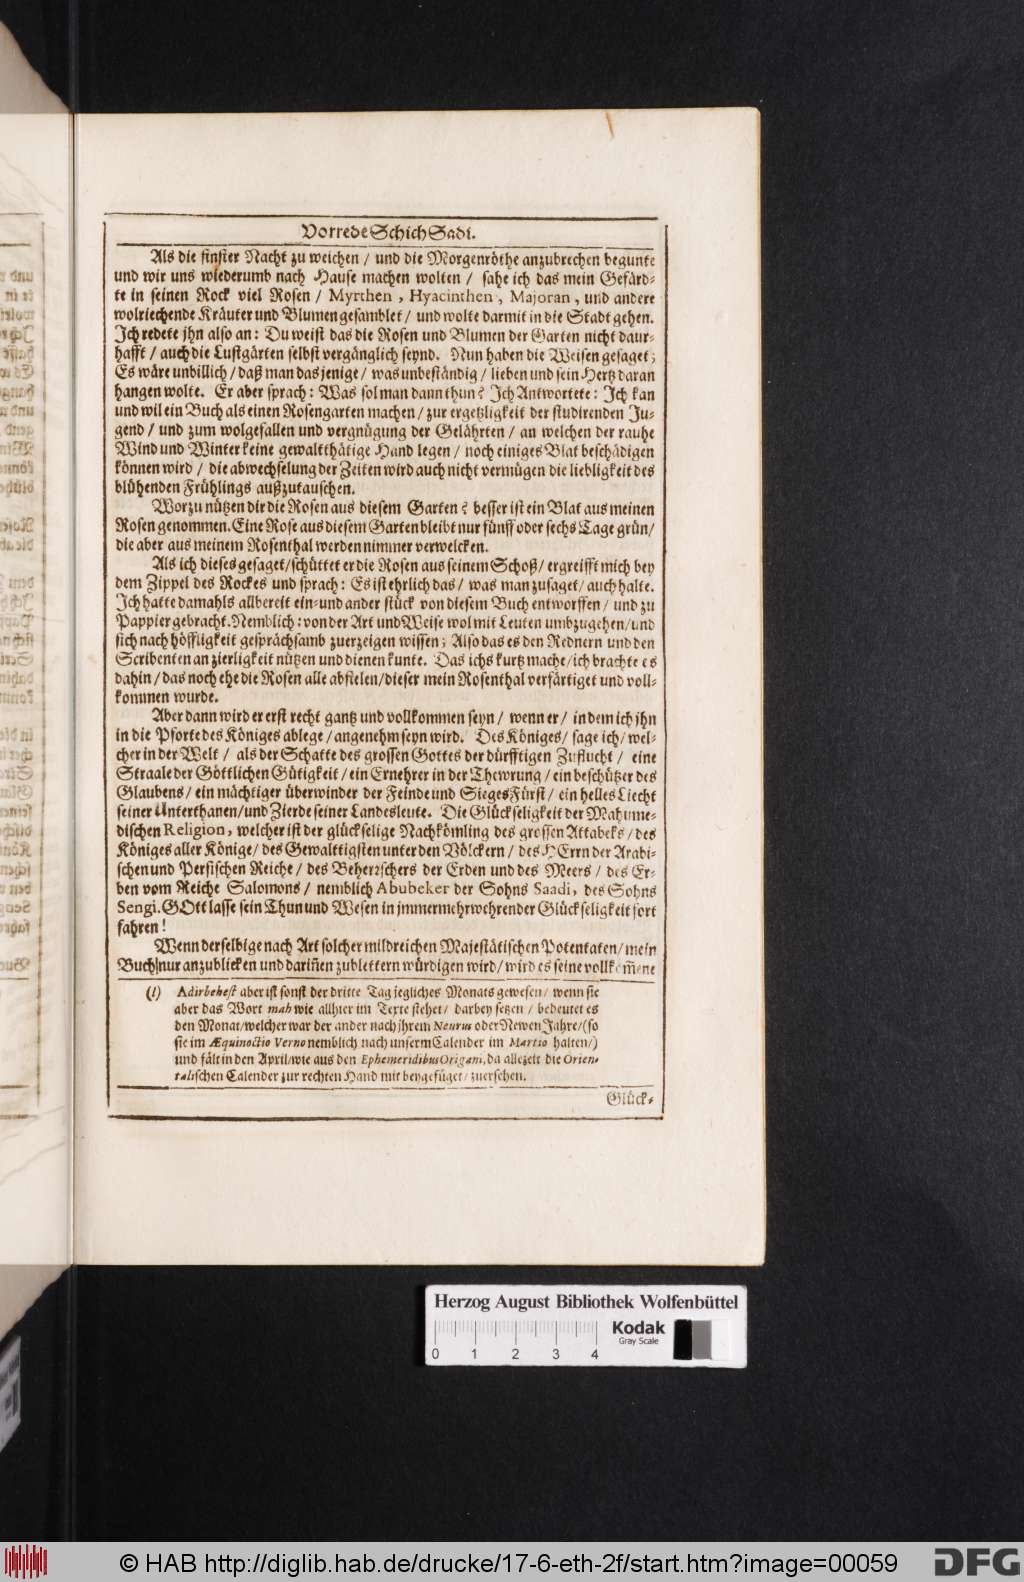 Vorrede Schich Sadi.
Als die finster Nacht zu weichen / und die Morgenröthe anzubrechen begunte
und wir uns wiederumb nach Hause machen wolten / sahe ich das mein Gefärd-
te in seinen Rock viel Rosen / Myrthen, Hyacinthen, Majoran, und andere
wolriechende Kräuter und Blumen gesamblet / und wolte darmit in die Stadt gehen.
Ich redete jhn also an: Du weist das die Rosen und Blumen der Garten nicht daur-
hafft / auch die Lustgärten selbst vergänglich seynd. Nun haben die Weisen gesaget;
Es wäre unbillich / daß man das jenige / was unbeständig / lieben und sein Hertz daran
hangen wolte. Er aber sprach: Was sol man dann thun? Ich Antwortete: Ich kan
und wil ein Buch als einen Rosengarten machen / zur ergetzligkeit der studirenden Ju-
gend / und zum wolgefallen und vergnügung der Gelährten / an welchen der rauhe
Wind und Winter keine gewaltthätige Hand legen / noch einiges Blat beschädigen
können wird / die abwechselung der Zeiten wird auch nicht vermügen die liebligkeit des
blühenden Frühlings außzutauschen.
Worzu nützen dir die Rosen aus diesem Garten? besser ist ein Blat aus meinen
Rosen genommen. Eine Rose aus diesem Garten bleibt nur fünff oder sechs Tage grün/
die aber aus meinem Rosenthal werden nimmer verwelcken.
Als ich dieses gesaget/schüttet er die Rosen aus seinem Schoß/ ergreifft mich bey
dem Zippel des Rockes und sprach: Es ist ehrlich das / was man zusaget/ auch halte.
Ich hatte damahls allbereit ein- und ander stück von diesem Buch entworffen / und zu
Pappier gebracht. Nemblich: von der Art und Weise wol mit Leuten umbzugehen/und
sich nach höffligkeit gesprächsamb zuerzeigen wissen; Also das es den Rednern und den
Scribenten an zierligkeit nützen und dienen kunte. Das ichs kurtz mache/ich brachte es
dahin / das noch ehe die Rosen alle abfielen/dieser mein Rosenthal verfärtiget und voll-
kommen wurde.
Aber dann wird er erst recht gantz und vollkommen seyn / wenn er / in dem ich jhn
in die Pforte des Königes ablege / angenehm seyn wird. Des Königes/ sage ich/ wel-
cher in der Welt / als der Schatte des grossen Gottes der dürfftigen Zuflucht / eine
Straale der Göttlichen Gütigkeit / ein Ernehrer in der Thewrung / ein beschützer des
Glaubens / ein mächtiger überwinder der Feinde und Sieges Fürst / ein helles Liecht
seiner Unterthanen/und Zierde seiner Landesleute. Die Glückseligkeit der Mahume-
dischen Religion, welcher ist der glückselige Nachkömling des grossen Attabeks / des
Königes aller Könige / des Gewalttigsten unter den Völckern / des HErrn der Arabi-
schen und Persischen Reiche / des Beherrschers der Erden und des Meers / des Er-
ben vom Reiche Salomons / nemblich Abubeker der Sohns Saadi, des Sohns
Sengi. GOtt lasse sein Thun und Wesen in jmmermehrwehrender Glückseligkeit fort
fahren!
Wenn derselbige nach Art solcher mildreichen Majestätischen Potentaten / mein
Buch nur anzublicken und dariñen zublettern würdigen wird / wird es seine vollkom̃ene
(l) Adirbehest aber ist sonst der dritte Tag jegliches Monats gewesen / wenn sie
aber das Wort mah wie allhier im Texte stehet / darbey setzen / bedeutet es
den Monat/welcher war der ander nach jhrem Neurus oder Newen Jahre/(so
sie im Æquinoctio Verno nemblich nach unserm Calender im Martio halten/)
und fält in den April/wie aus den Ephemeridibus Origani, da allezeit die Orien-
talischen Calender zur rechten Hand mit beygefüget / zuersehen.
Glück-
Herzog August Bibliothek Wolfenbüttel
Kodak
Gray Scale
0 1 2 3 4
© HAB http://diglib.hab.de/drucke/17-6-eth-2f/start.htm?image=00059
DFG